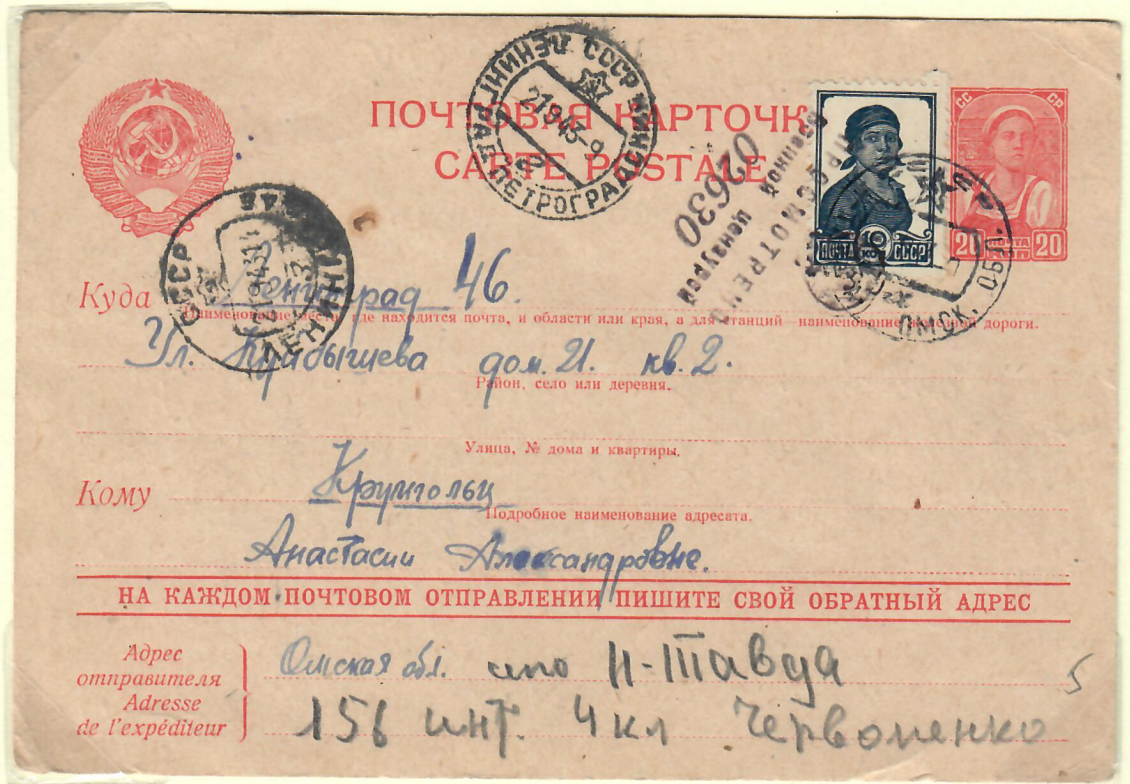 ПОЧТОВАЯ КАРТОЧКА
CARTE POSTALE
СССР ЛЕНИНГРАД
21 9 43-9
ПЕТРОГРАДСКИЙ
Просмотрено
Военной
цензурой
02630
ПОЧТА СССР
СС СР
20 ПОЧТА 20
ОМСК. ОБЛ.
СССР
ЛЕНИНГ
Куда Ленинград 46.
Наименование места, где находится почта, и области или края, а для станций—наименование железной дороги.
Ул. Куйбышева дом. 21. кв. 2.
Район, село или деревня.
Улица, № дома и квартиры.
Кому Крумгольц
Подробное наименование адресата.
Анастасии Александровне.
НА КАЖДОМ ПОЧТОВОМ ОТПРАВЛЕНИИ ПИШИТЕ СВОЙ ОБРАТНЫЙ АДРЕС
Адрес отправителя
Adresse de l'expéditeur
Омская обл. п/о Н-Тавда
156 инт. 4 кл Червоненко
5